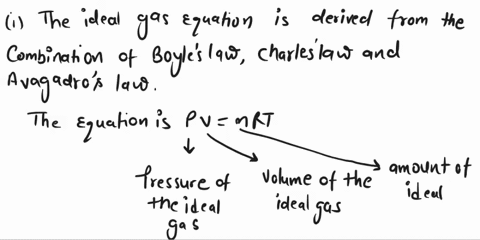 (i) The ideal gas equation is derived from the
Combination of Boyle's law, Charles' law and
Avagadro's law.
The Equation is PV = nRT
Pressure of
the ideal
gas
volume of the
ideal gas
amount of
ideal